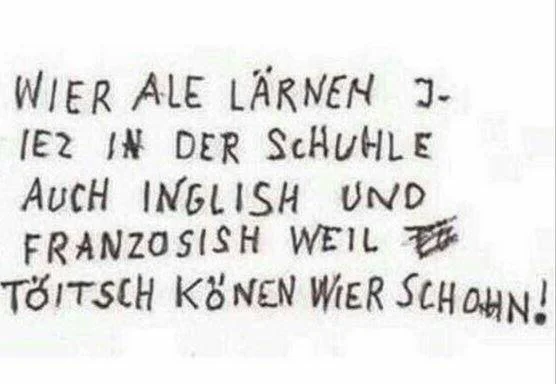 WIER ALE LÄRNEN J-
IEZ IN DER SCHUHLE
AUCH INGLISH UND
FRANZOSISH WEIL
TÖITSCH KÖNEN WIER SCHOHN!